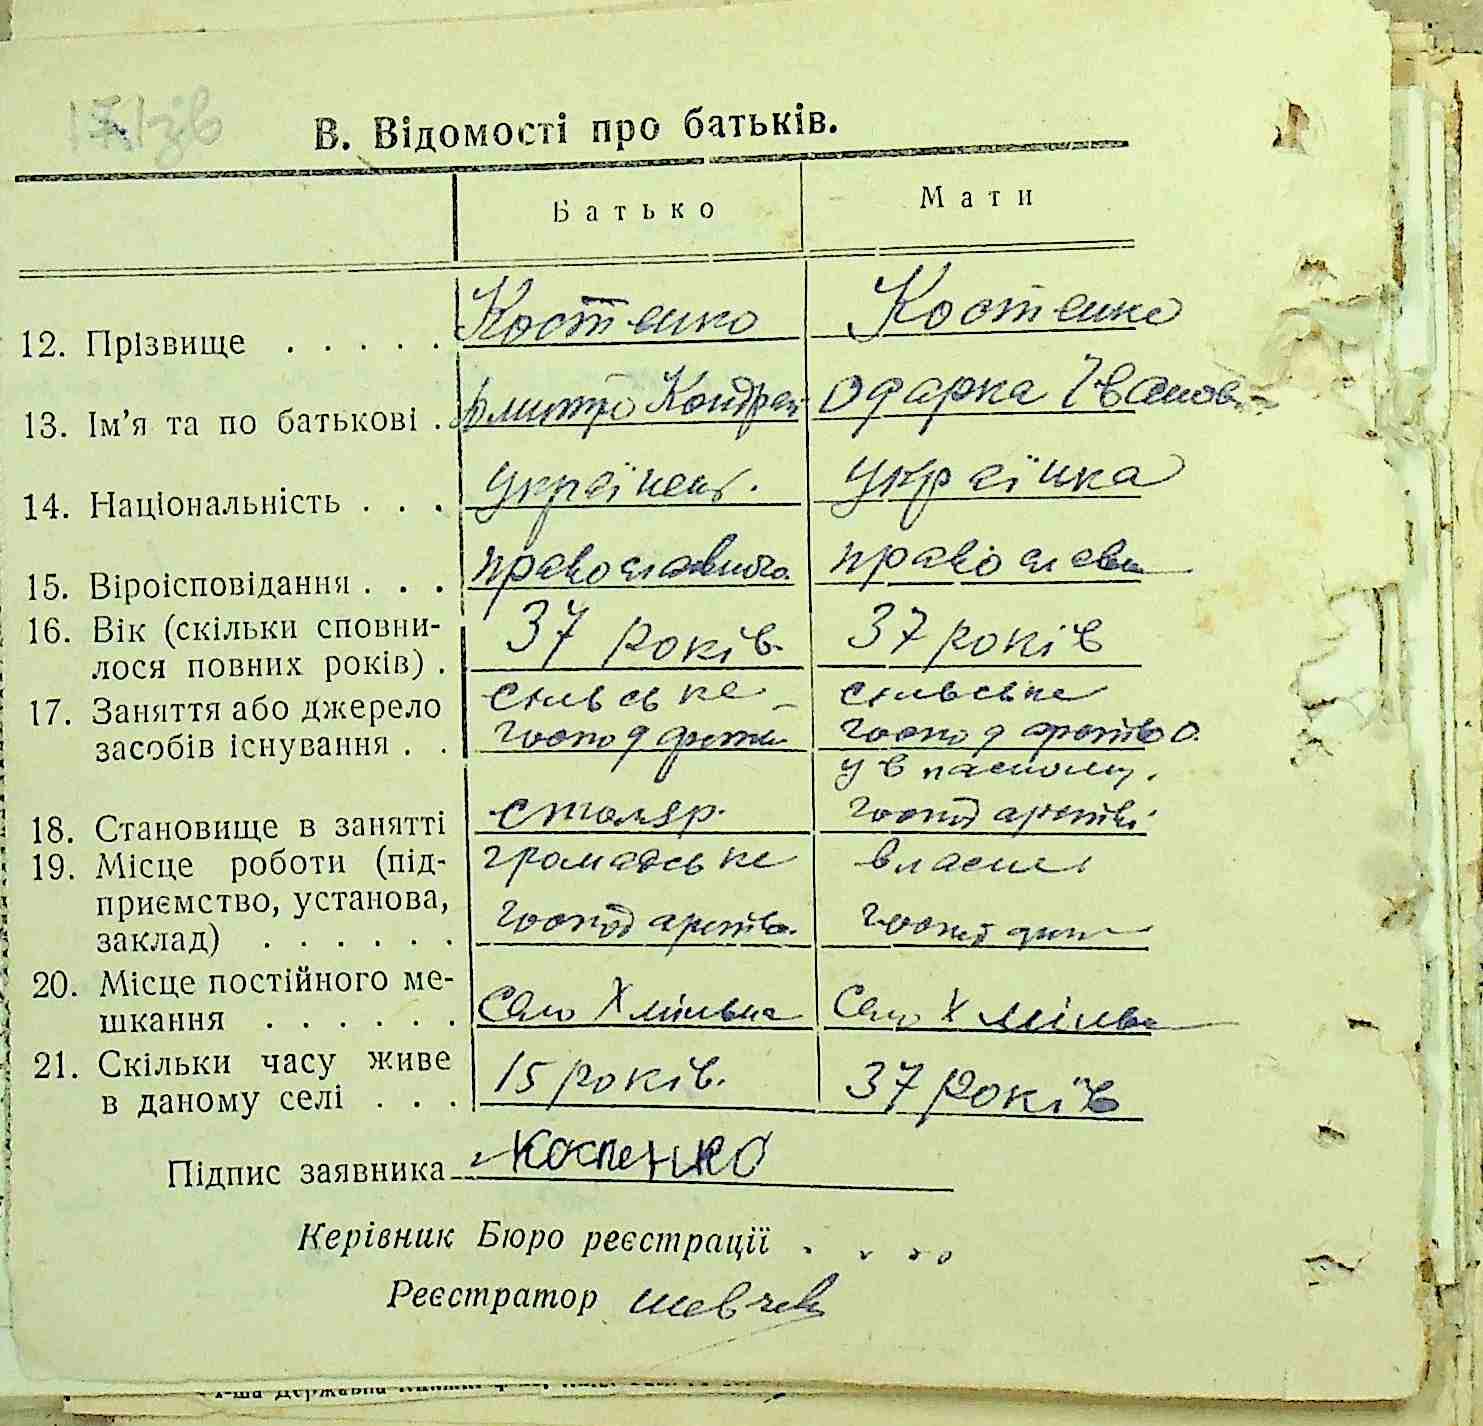 В. Відомості про батьків.
Батько Мати
12. Прізвище . . . . . Костенко Костенко
13. Ім'я та по батькові . Дмитро Кондрат Одарка Іванов
14. Національність . . . українець. українка
15. Віроісповідання . . . православного православна
16. Вік (скільки сповни-
лося повних років) . 37 років. 37 років
17. Заняття або джерело сільське сільське
засобів існування . . господарство господарство
у власному.
18. Становище в занятті столяр. господарстві
19. Місце роботи (під- громадське власне
приємство, установа,
заклад) . . . . . . господарство. господар
20. Місце постійного ме-
шкання . . . . . . Село Хмільна Село Хмільна
21. Скільки часу живе
в даному селі . . . 15 років. 37 років
Підпис заявника Костенко
Керівник Бюро реєстрації . . . .
Реєстратор Шевчен